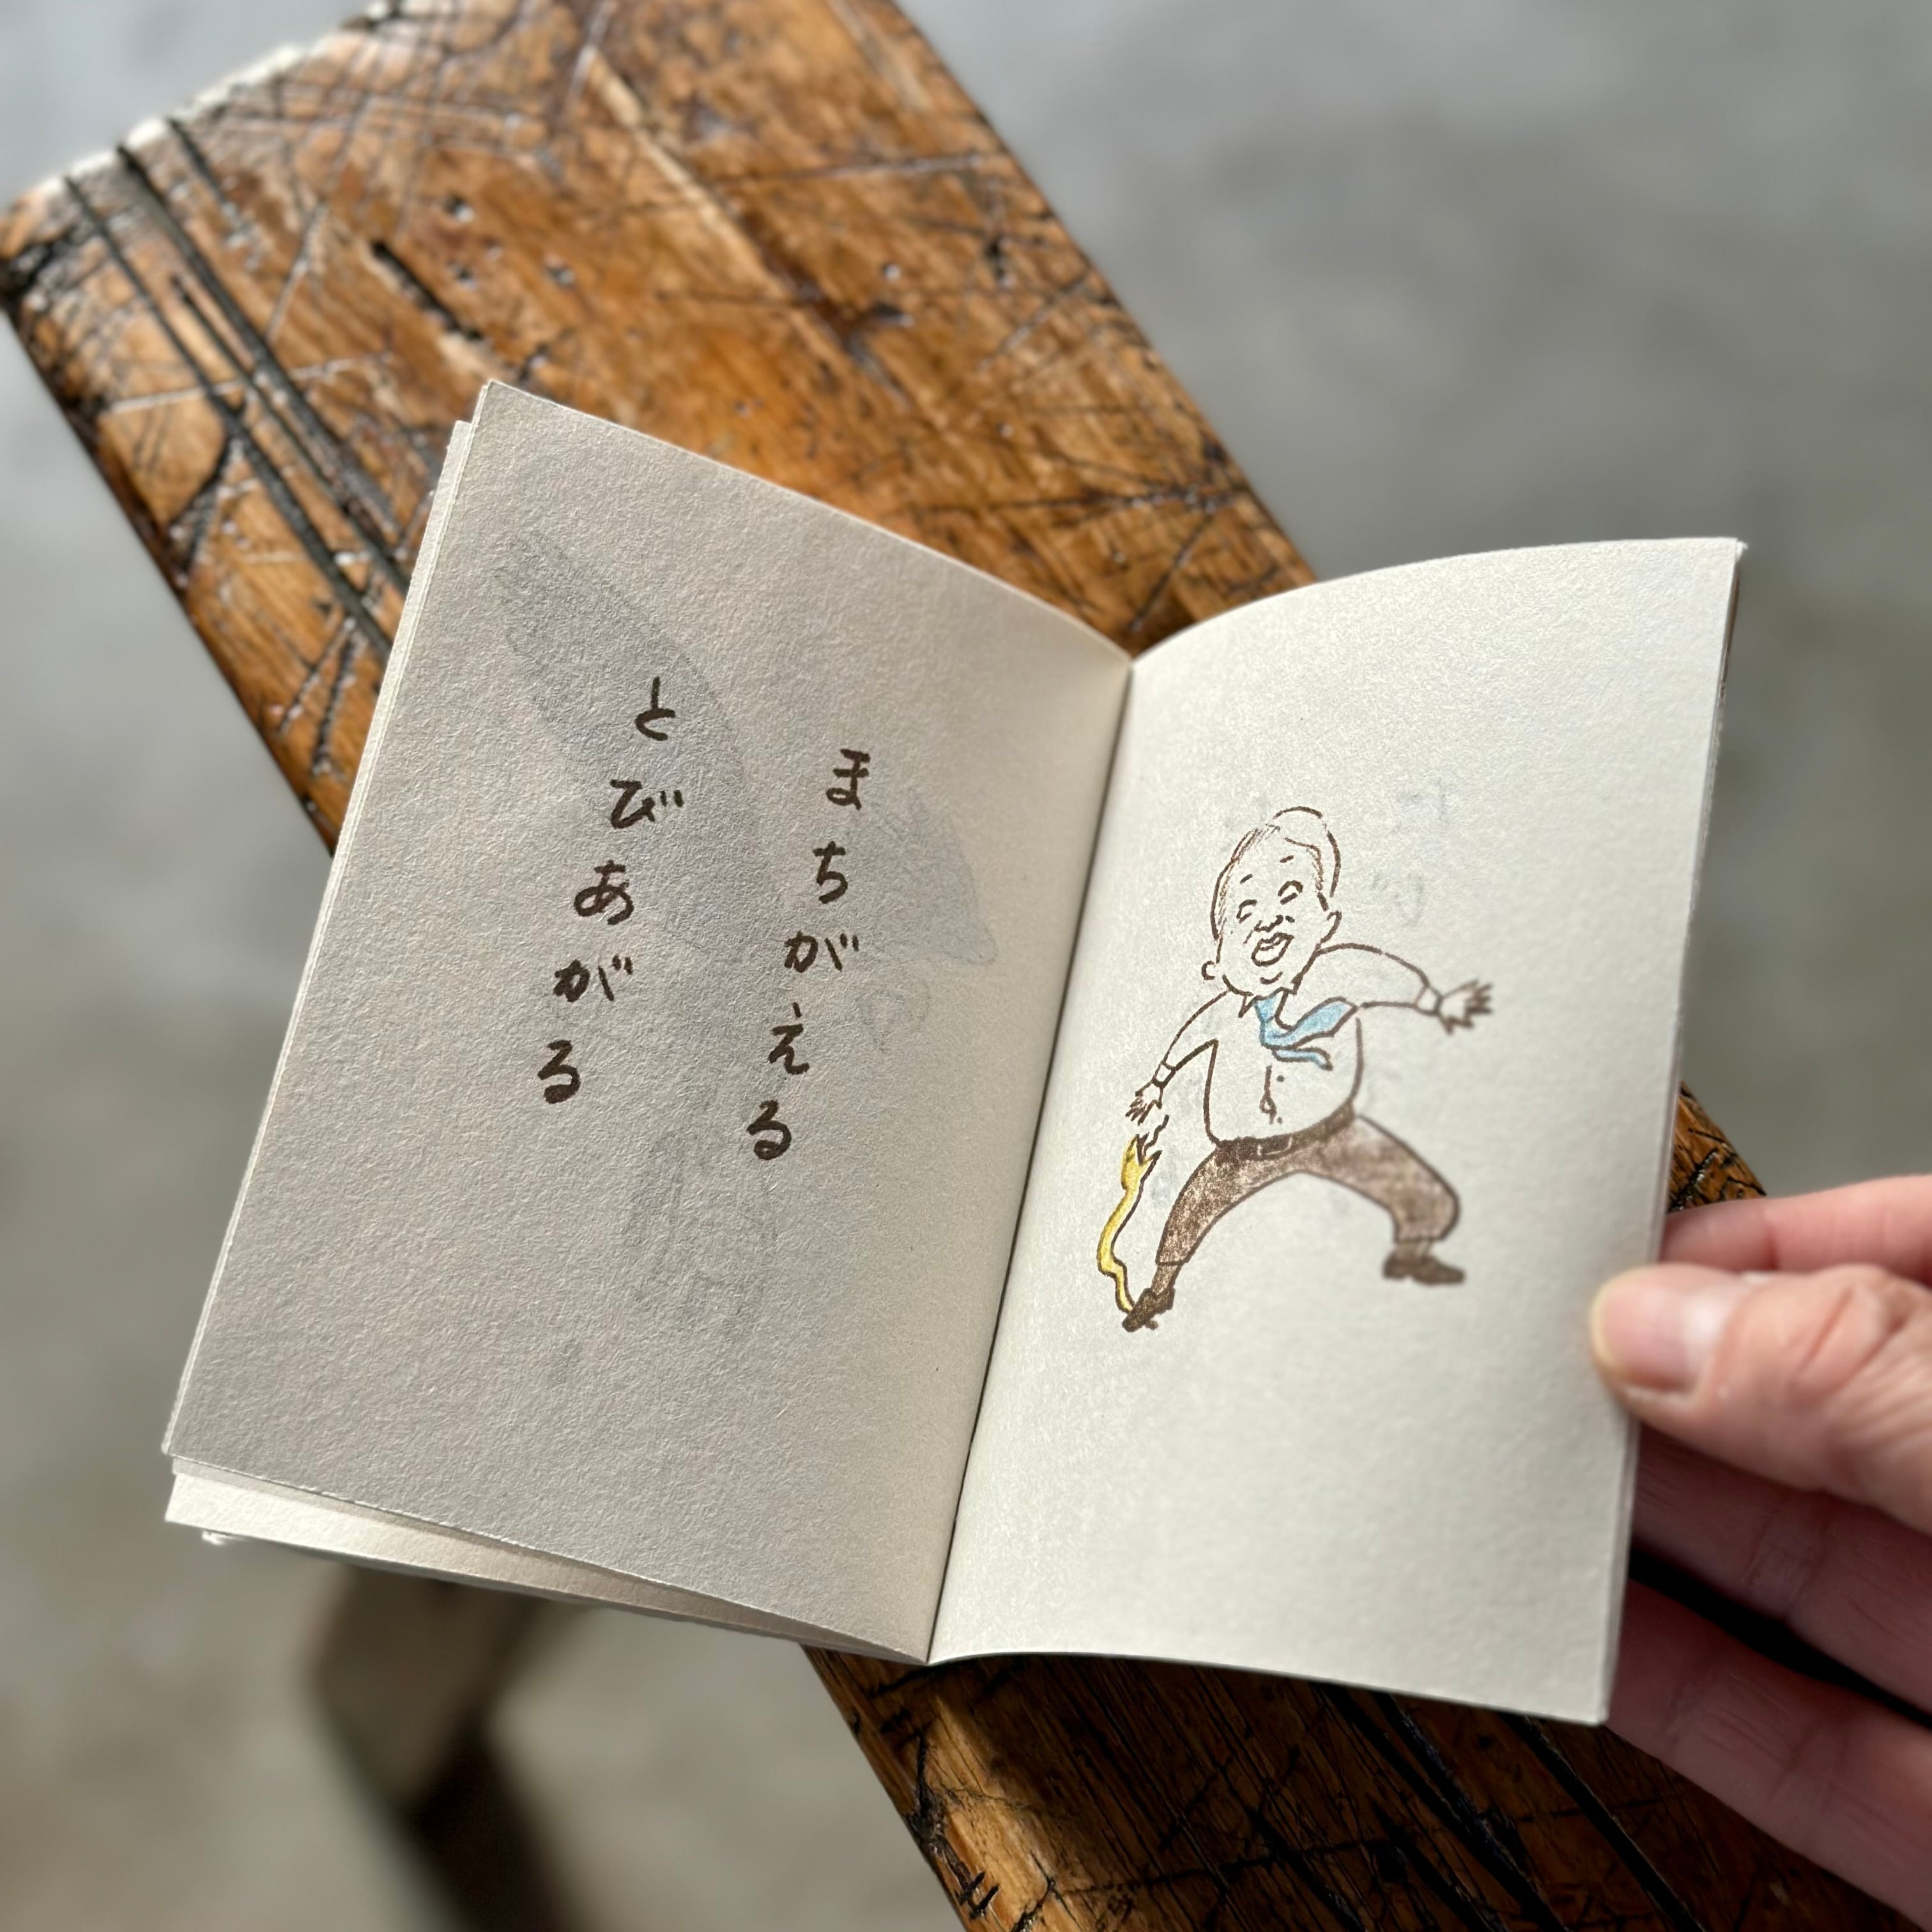 まちがえる
とびあがる